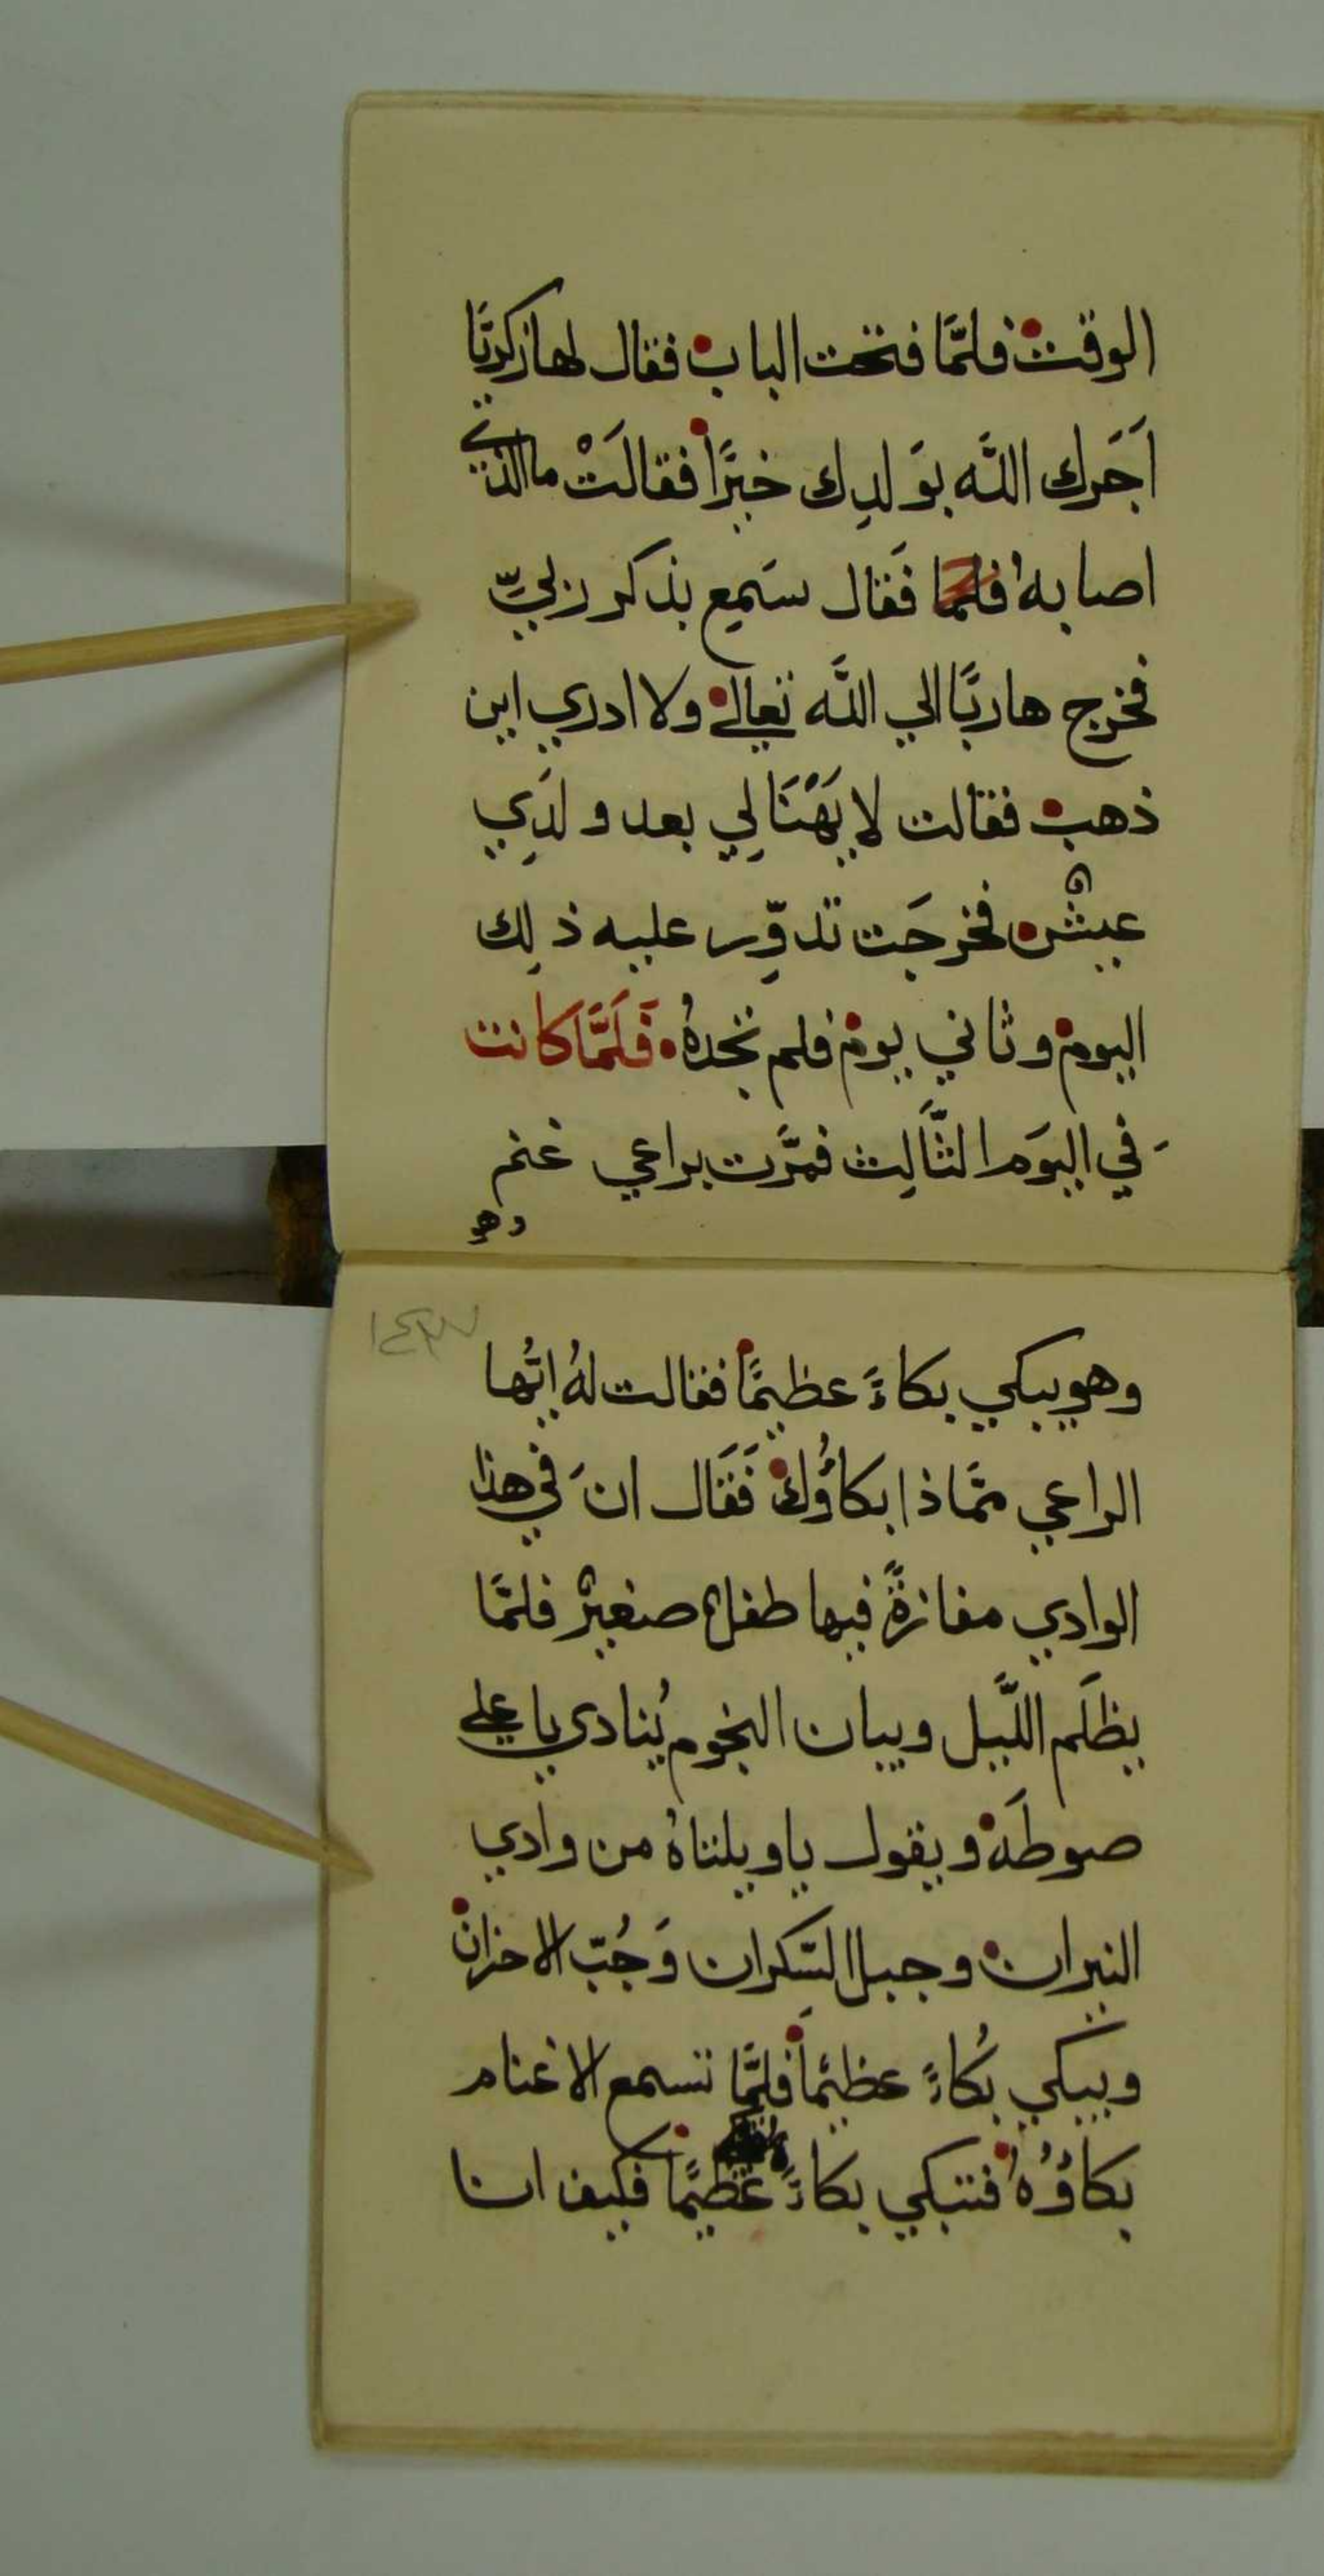 الوقت فلمَّا فتحت الباب فقال لها زكريَّا
اَجَرك اللَّه بوَلدِك خيرًا فقالَتْ ما الذي
اصابهُ فلما فَقال سَمِع بذكر زبليّ
فخرج هاربًا الي اللَّه تعالي ولا ادري اين
ذهب فقالت لا يَهْنَا لِي بعد ولَدِي
عيش فخرجَت تدوِّر عليه ذلِك
اليوم وثاني يوم فلم تجدهُ فَلَمَّا كانت
في اليَوم الثَّالِث فمرَّت براعي غنم
وهو
١٤٣
وهو يبكي بكاءً عظيمًا فقالت لهُ ايُّها
الراعي ممَّاذا بكاؤُك فَقَال انَ في هذا
الوادي مغازةً فيها طفلٌ صغيرٌ فلمَّا
يظلَم اللَّيل ويبان النجوم يُنادي يا علي
صوطَه ويقول يا ويلتاهُ من وادي
النيران وجبل السَّكران وَجُبّ الاحزان
ويبكي بُكاءً عظيمًا فلمَّا تسمع الاغنام
بكاؤُهُ فتبكي بكاءً عظيمًا فكيف انا